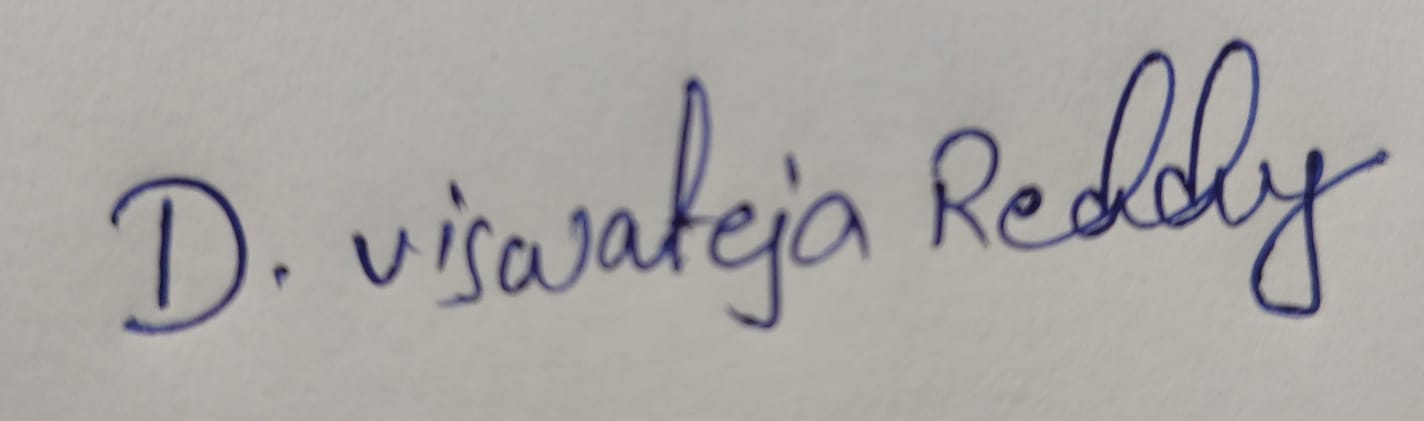 D. viswateja Reddy